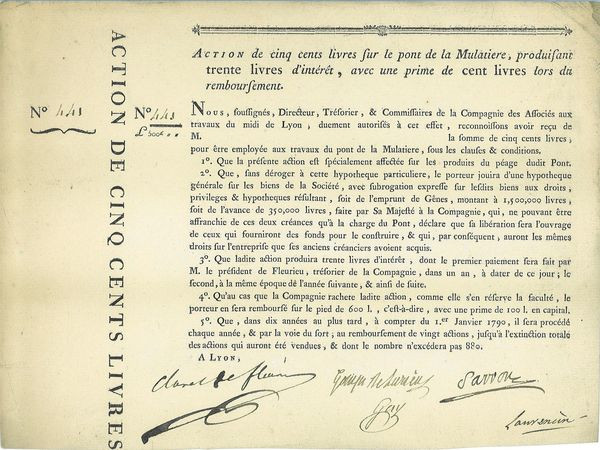 ACTION DE CINQ CENTS LIVRES
ACTION de cinq cents livres ſur le pont de la Mulatiere, produiſant
trente livres d'intérêt, avec une prime de cent livres lors du
rembourſement.
Nº 443
Nº 443
£ 500 " "
NOUS, ſouſſignés, Directeur, Tréſorier, & Commiſſaires de la Compagnie des Aſſociés aux
travaux du midi de Lyon, duement autoriſés à cet effet, reconnoiſſons avoir reçu de
M. la ſomme de cinq cents livres,
pour être employée aux travaux du pont de la Mulatiere, ſous les clauſes & conditions.
1º. Que la préſente action eſt ſpécialement affectée ſur les produits du péage dudit Pont.
2º. Que, ſans déroger à cette hypotheque particuliere, le porteur jouira d'une hypotheque
générale ſur les biens de la Société, avec ſubrogation expreſſe ſur leſdits biens aux droits,
privileges & hypotheques réſultant, ſoit de l'emprunt de Gênes, montant à 1,500,000 livres,
ſoit de l'avance de 350,000 livres, faite par Sa Majeſté à la Compagnie, qui, ne pouvant être
affranchie de ces deux créances qu'à la charge du Pont, déclare que ſa libération ſera l'ouvrage
de ceux qui fourniront des fonds pour le conſtruire, & qui, par conſéquent, auront les mêmes
droits ſur l'entrepriſe que ſes anciens créanciers avoient acquis.
3º. Que ladite action produira trente livres d'intérêt, dont le premier paiement ſera fait par
M. le préſident de Fleurieu, tréſorier de la Compagnie, dans un an, à dater de ce jour; le
ſecond, à la même époque de l'année ſuivante, & ainſi de ſuite.
4º. Qu'au cas que la Compagnie rachete ladite action, comme elle s'en réſerve la faculté, le
porteur en ſera rembourſé ſur le pied de 600 l., c'eſt-à-dire, avec une prime de 100 l. en capital.
5º. Que, dans dix années au plus tard, à compter du 1.er Janvier 1790, il ſera procédé
chaque année, & par la voie du ſort; au rembourſement de vingt actions, juſqu'à l'extinction totale
des actions qui auront été vendues, & dont le nombre n'excédera pas 880.
A LYON,
Claret de fleurieu
Savvou
Guy
Laurencin